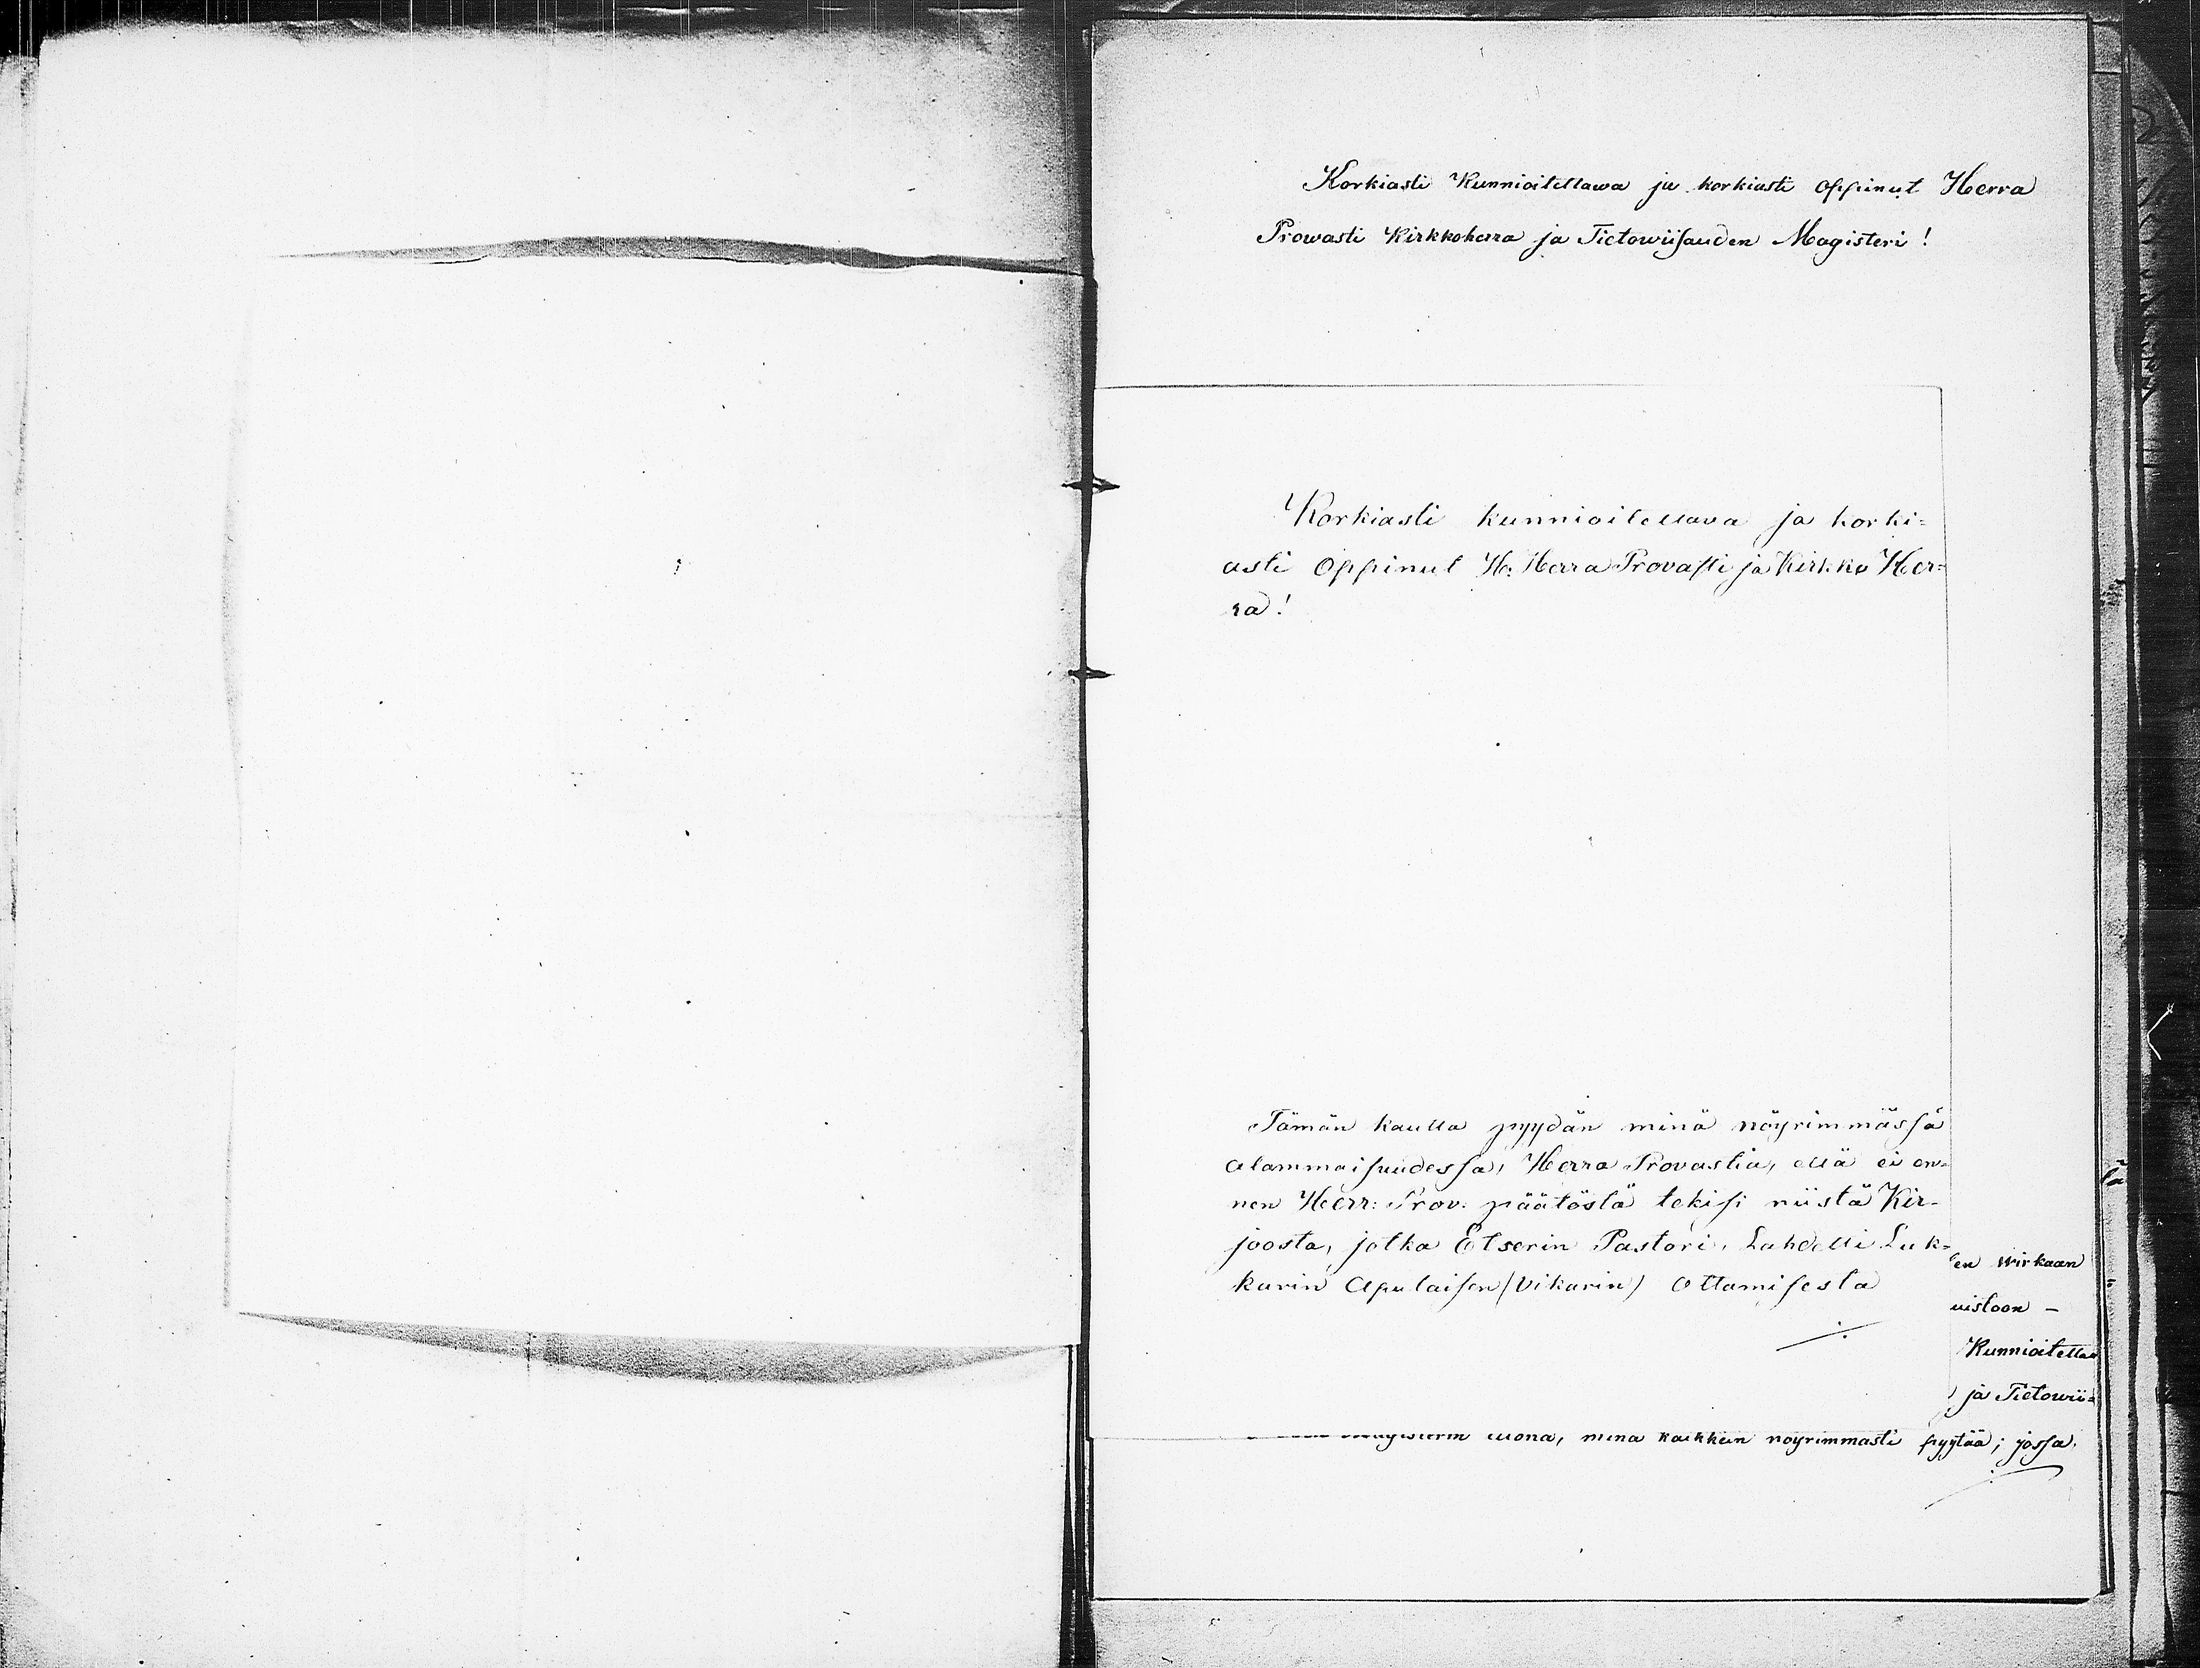 Korkiasti Kunnioitettawa ja korkiasti oppinut Herra
Prowasti Kirkkoherra ja Tietowiisauden Magisteri!
Korkiasti kunnioitettava ja korki=
asti Oppinut H: Herra Provasti ja Kirkko Her=
ra!
Tämän kautta pyydän minä nöyrimmässä
alammaisuudessa, Herra Provastia, että ei en=
nen Herr: Prov: päätöstä tekisi niistä Kir-
joosta, jotka Etserin Pastori, Lahdelli Luk=
karin Apulaisen (Vikarin) Ottamisesta
en wirkaan
uistoon –
Kunnioitettaw
ja Tietowii=
tuona, minä kaikkein nöyrimmasti pyytää; jossa